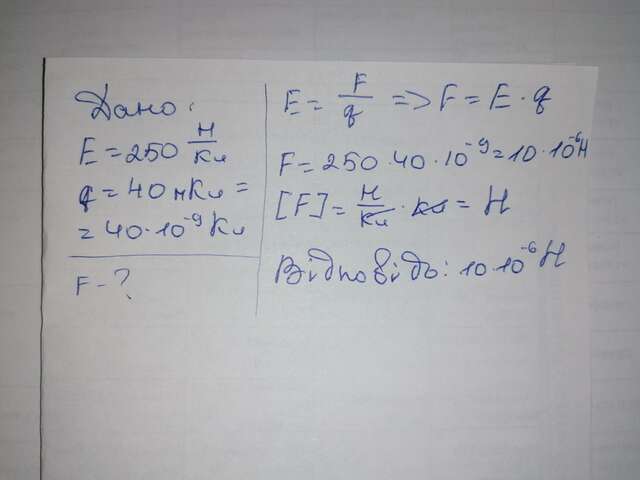 Дано:
E = 250 Н/Кл
q = 40 нКл =
= 40·10⁻⁹ Кл
F - ?
E = F/q => F = E · q
F = 250 · 40 · 10⁻⁹ = 10 · 10⁻⁶ Н
[F] = Н/Кл · Кл = Н
Відповідь: 10·10⁻⁶ Н